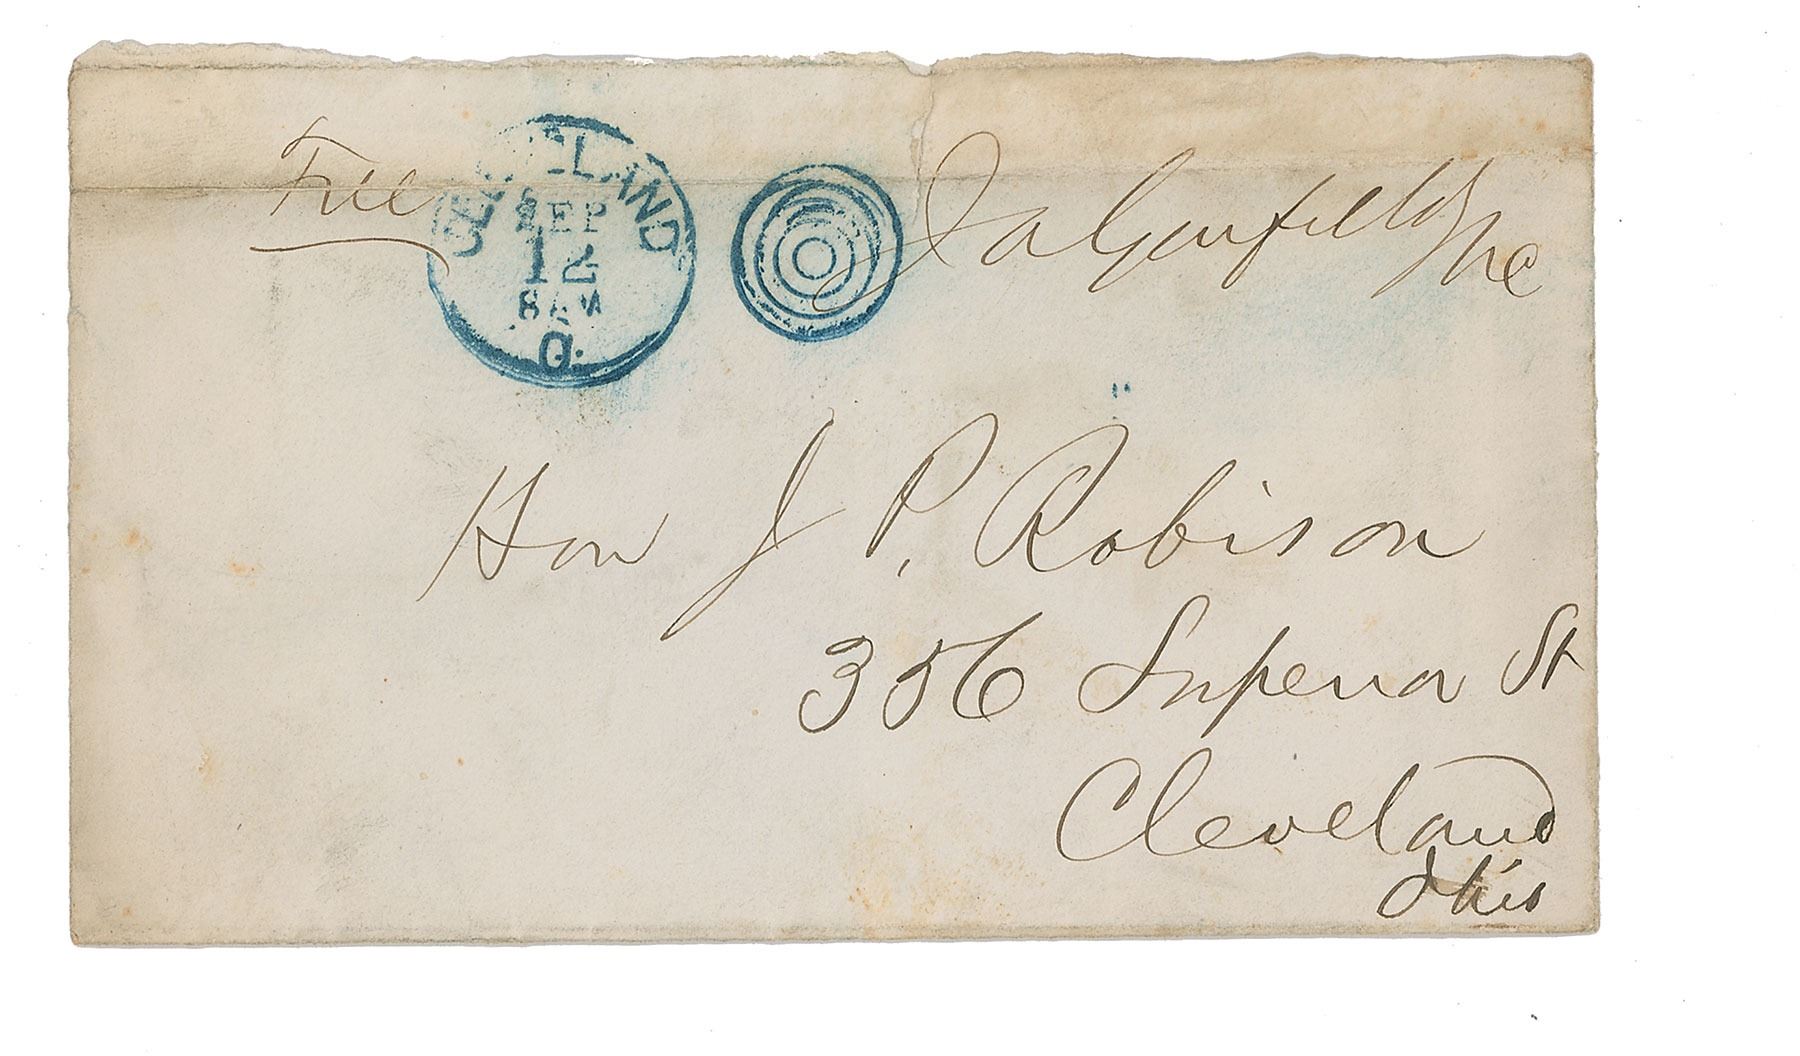 Free
CLEVELAND
SEP
12
8 AM
O.
J a Garfield Mc
Hon J P. Robison
356 Superior St
Cleveland
Ohio